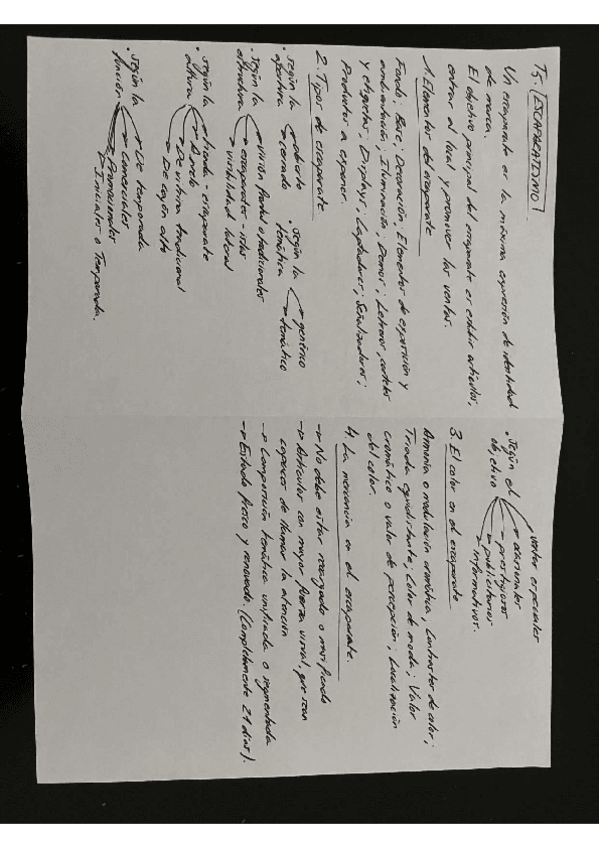 T5. ESCAPARATISMO
Un escaparate es la máxima expresión de identidad
de marca.
El objetivo principal del escaparate es exhibir artículos,
entrar al local y promover las ventas.
1. Elementos del escaparate
Fondo; Base; Decoración; Elementos de exposición y
ambientación; Iluminación; Demos; Letreros, carteles
y etiquetas; Displays; Captadores; Señalizadores;
Productos a exponer.
2. Tipos de escaparate
· Según la apertura: abierto
cerrado
· Según la temática: genérico
temático
· Según la estructura: visión frontal o tradicionales
escaparates-islas
visibilidad lateral
· Según la altura: lineada-escaparate
A suelo
De vitrina tradicional
De cajón alto
· Según la función: De temporada
Comerciales
Promocionales
Iniciales o Temporada.
· Según el objetivo: ventas especiales
ocasionales
prestigiosos
publicitarios
informativos.
3. El color en el escaparate
Armonía o modulación cromática; Contrastes de color;
Triada equidistante; Color de moda; Valor
cromático o valor de percepción; Localización
del color.
4. La mercancía en el escaparate
→ No debe estar recargado o masificado
→ Artículos con mayor fuerza visual, que sean
capaces de llamar la atención
→ Composición temática unificada o segmentada
→ Estado fresco y renovado. (Completamente 21 días).